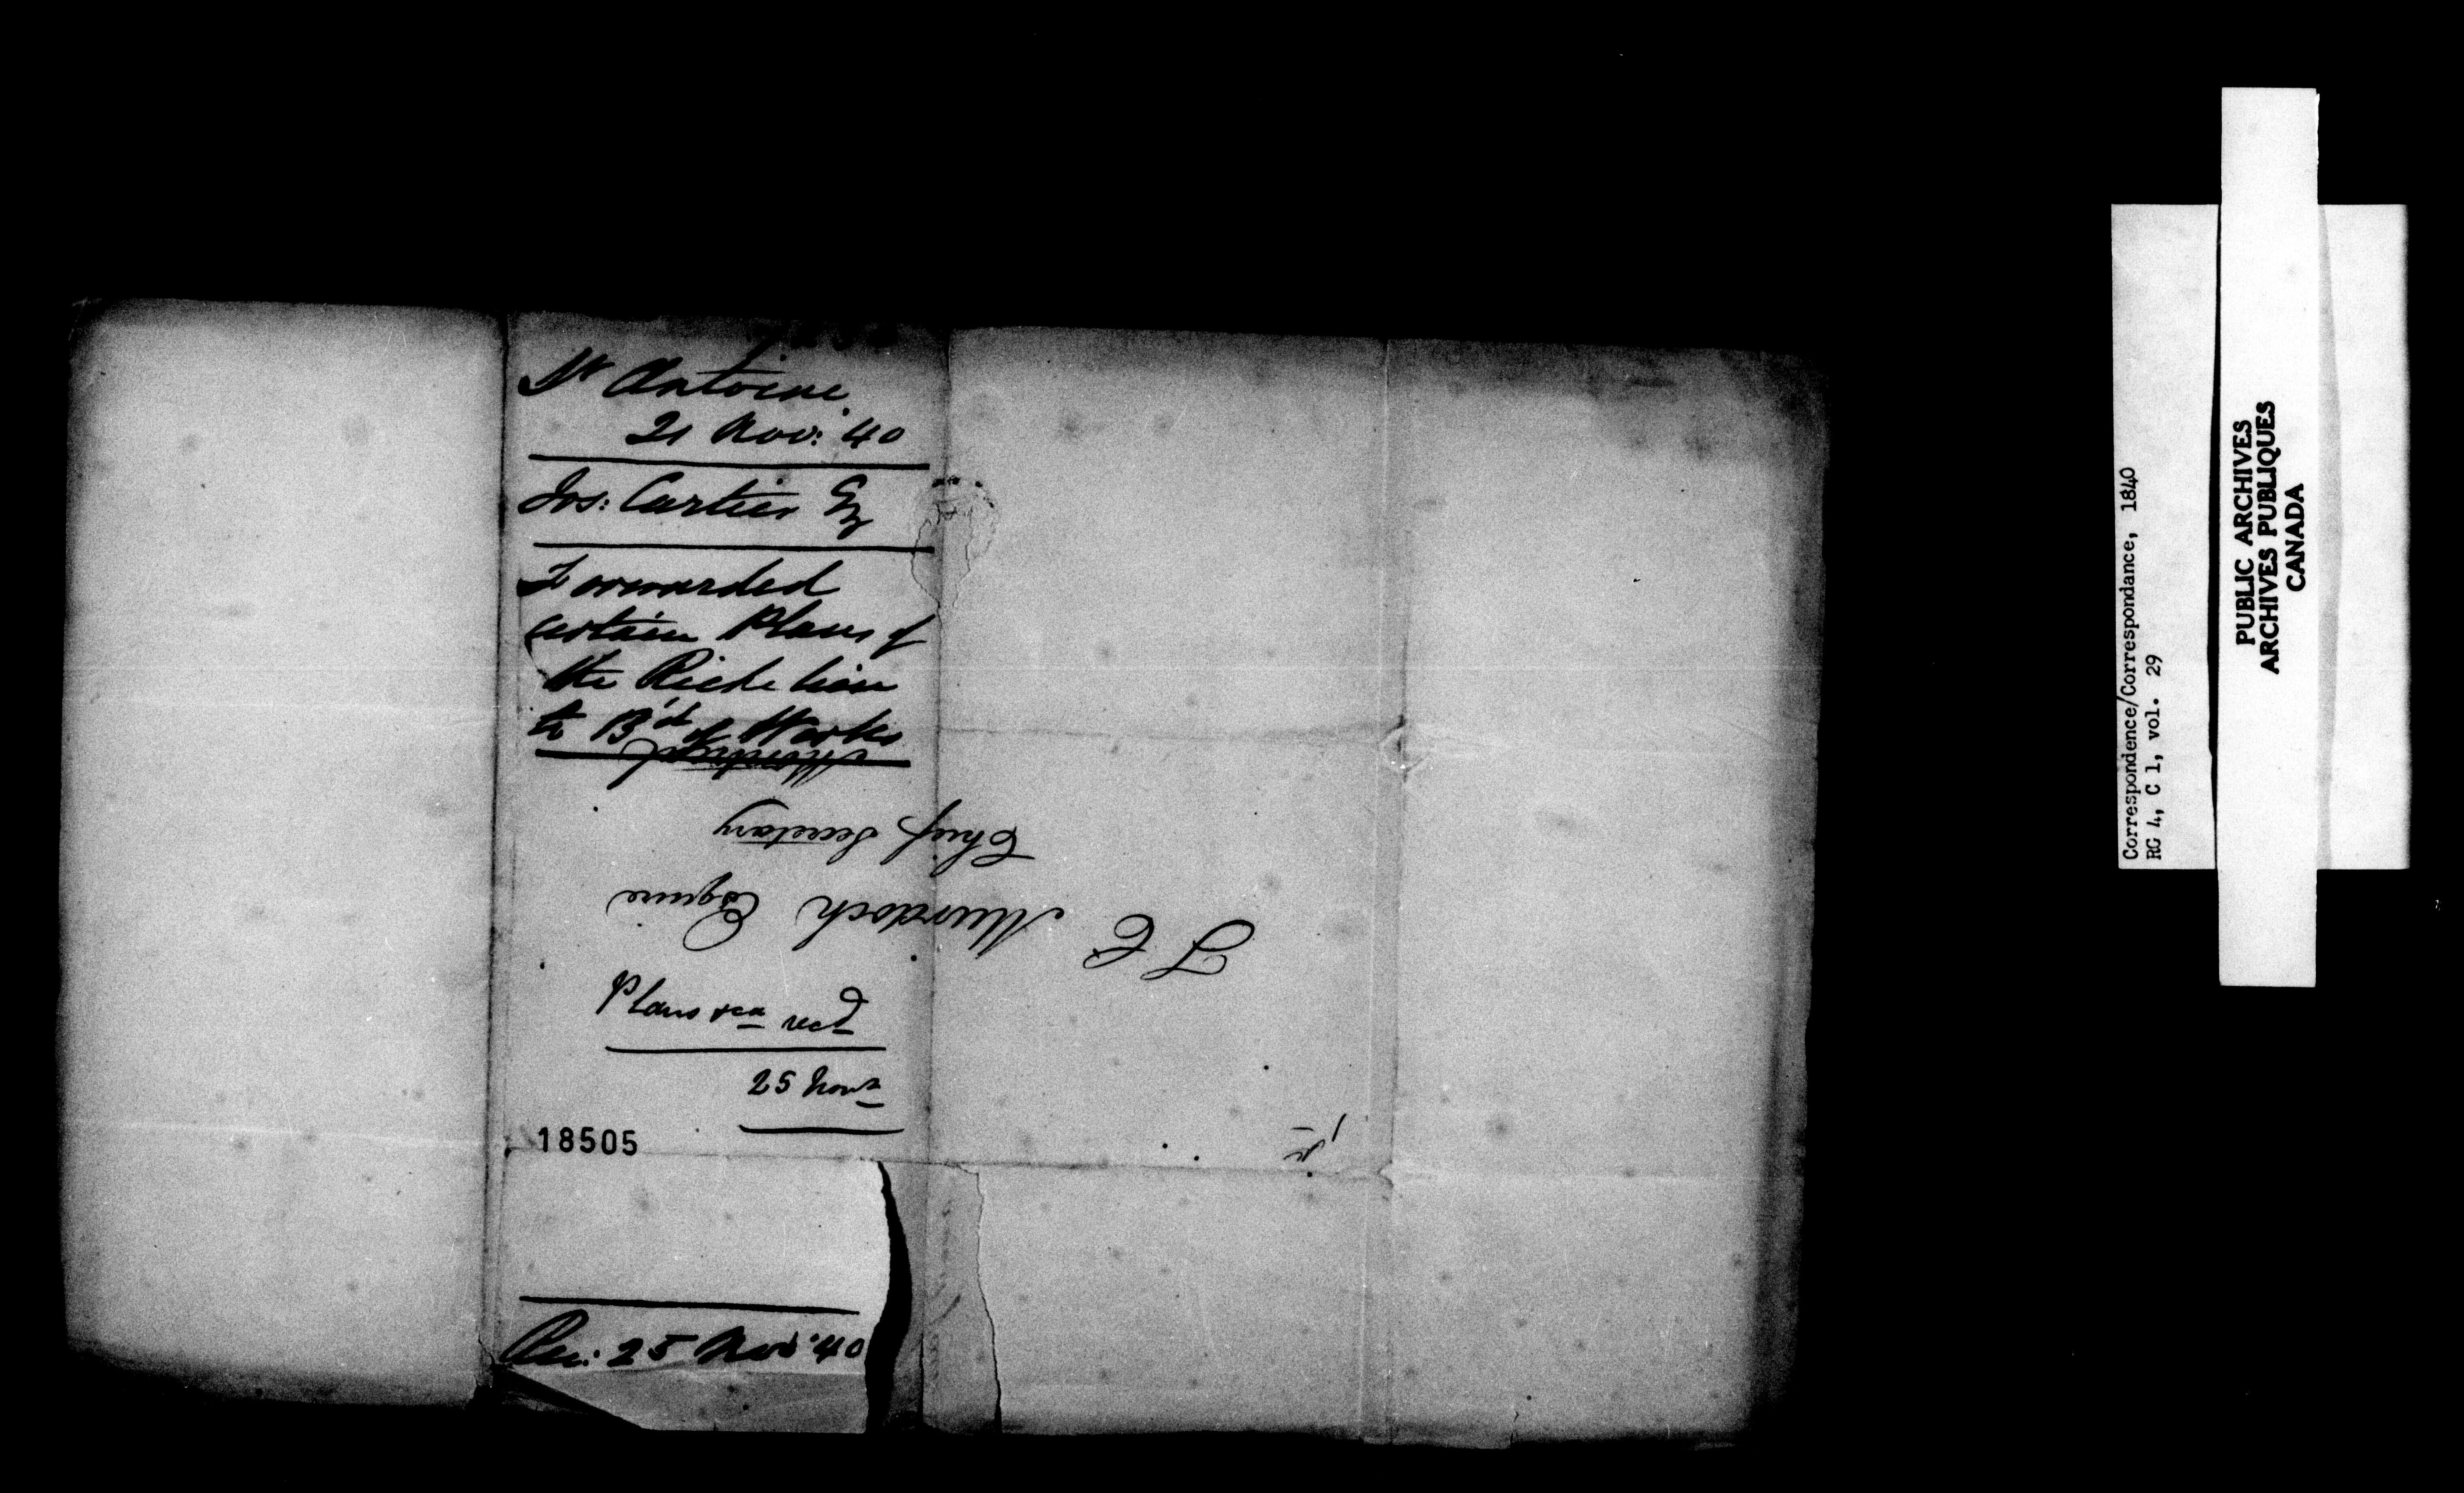 St Antoine
21 Nov: 40
Jos: Cartier Esq
Forwarded
certain Plans of
the Richelieu
to B'd of Works
T C Murdoch Esquire
Chief Secretary
Plans &ca recd
25 Novr
18505
Rec: 25 Nov: 40
Correspondence/Correspondance, 1840
RG 4, C 1, vol. 29
PUBLIC ARCHIVES
ARCHIVES PUBLIQUES
CANADA